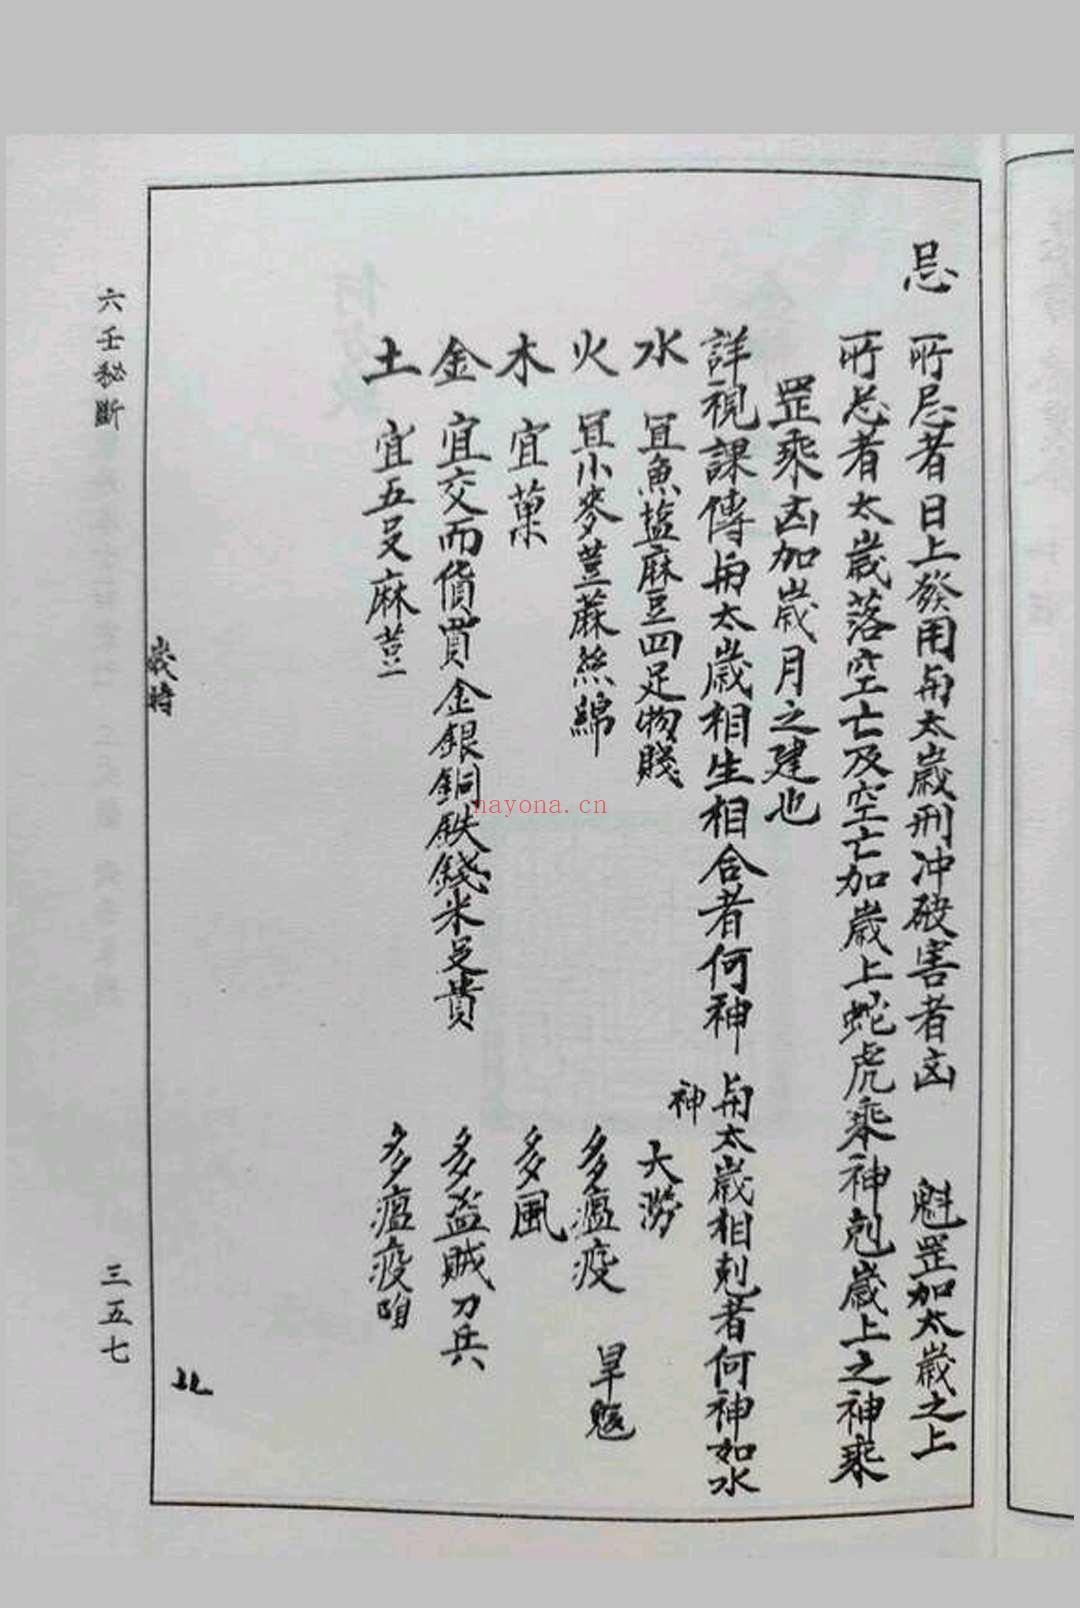 忌 所忌者日上發用與太歲刑冲破害者凶 魁罡加太歲之上
所忌者太歲落空亡及空亡加歲上蛇虎乘神剋歲上之神乘
罡乘凶加歲月之建也
詳視課傳與太歲相生相合者何神 與太歲相剋者何神如水
神
水 宜魚塩麻豆四足物賤 大澇
火 宜小麥荳蔴絲綿 多瘟疫 旱魃
木 宜菓 多風
金 宜交而貨買金銀銅鉄錢米足貴 多盗賊刀兵
土 宜五足麻荳 多瘟疫
歲時
六壬秘斷
三五七
nayona.cn